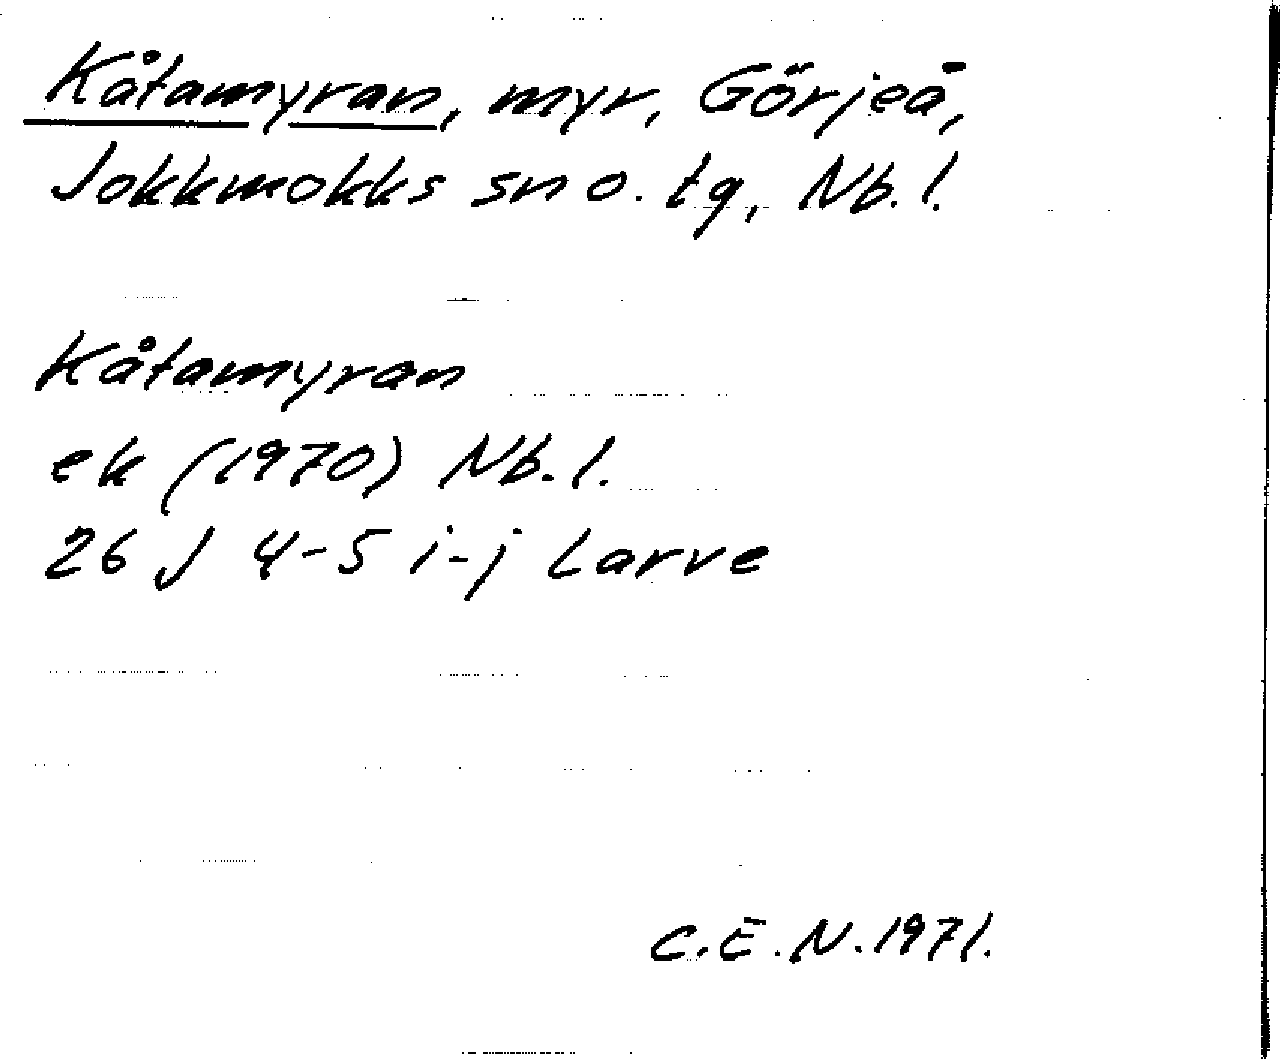 Kåtamyran, myr, Görjeå,
Jokkmokks sn o. tg, Nb. l.
Kåtamyran
ek (1970) Nb. l.
26 J 4-5 i-j Larve
C. E. N. 1971.